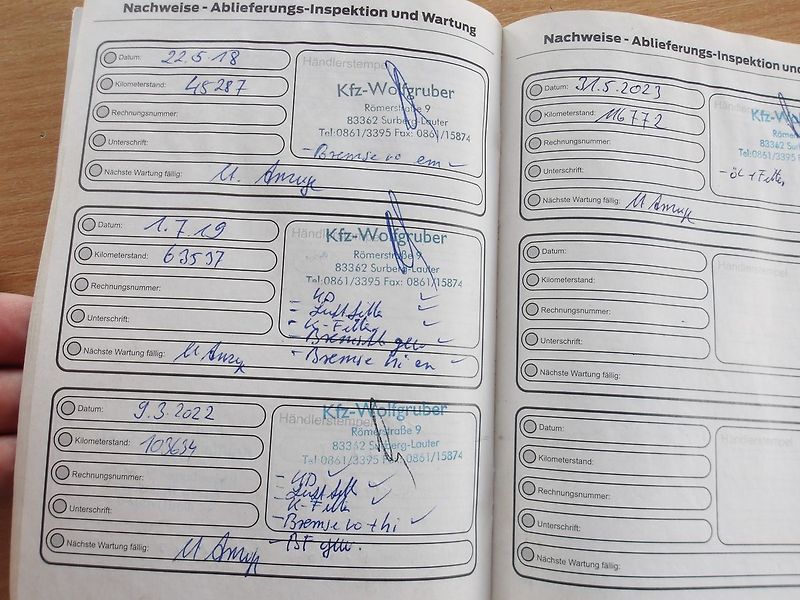 Nachweise - Ablieferungs-Inspektion und Wartung
Datum: 22.5.18
Kilometerstand: 48287
Rechnungsnummer:
Unterschrift:
Nächste Wartung fällig:
Händlerstempel
Kfz-Wolfgruber
Römerstraße 9
83362 Surberg-Lauter
Tel:0861/3395 Fax: 0861/15874
- Bremse vo em
Datum: 1.7.19
Kilometerstand: 63537
Rechnungsnummer:
Unterschrift:
Nächste Wartung fällig:
Händlerstempel
Kfz-Wolfgruber
Römerstraße 9
83362 Surberg-Lauter
Tel:0861/3395 Fax: 0861/15874
- Luftfilter
- K-Filter
- Bremse hi en
Datum: 9.3.2022
Kilometerstand: 103634
Rechnungsnummer:
Unterschrift:
Nächste Wartung fällig:
Händlerstempel
Kfz-Wolfgruber
Römerstraße 9
83362 Surberg-Lauter
Tel:0861/3395 Fax: 0861/15874
- K-Filter
- Bremse vo + hi
- BF gew.
Nachweise - Ablieferungs-Inspektion und
Datum: 31.5.2023
Kilometerstand: 116772
Rechnungsnummer:
Unterschrift:
Nächste Wartung fällig:
Kfz-Wo
Röme
83362 S
Tel:0861/3395
- öl + Filter
Datum:
Kilometerstand:
Rechnungsnummer:
Unterschrift:
Nächste Wartung fällig:
Händlerstempel
Datum:
Kilometerstand:
Rechnungsnummer:
Unterschrift:
Nächste Wartung fällig:
Händlerstempel